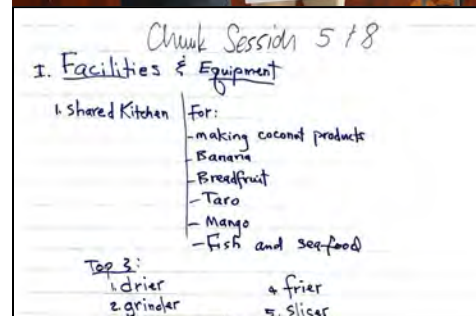 Chuuk Session 5/8
I. Facilities & Equipment
1. Shared Kitchen
For:
-making coconut products
-Banana
-Breadfruit
-Taro
-Mango
-Fish and sea food
Top 3:
1. drier
2. grinder
4. frier
5. slicer